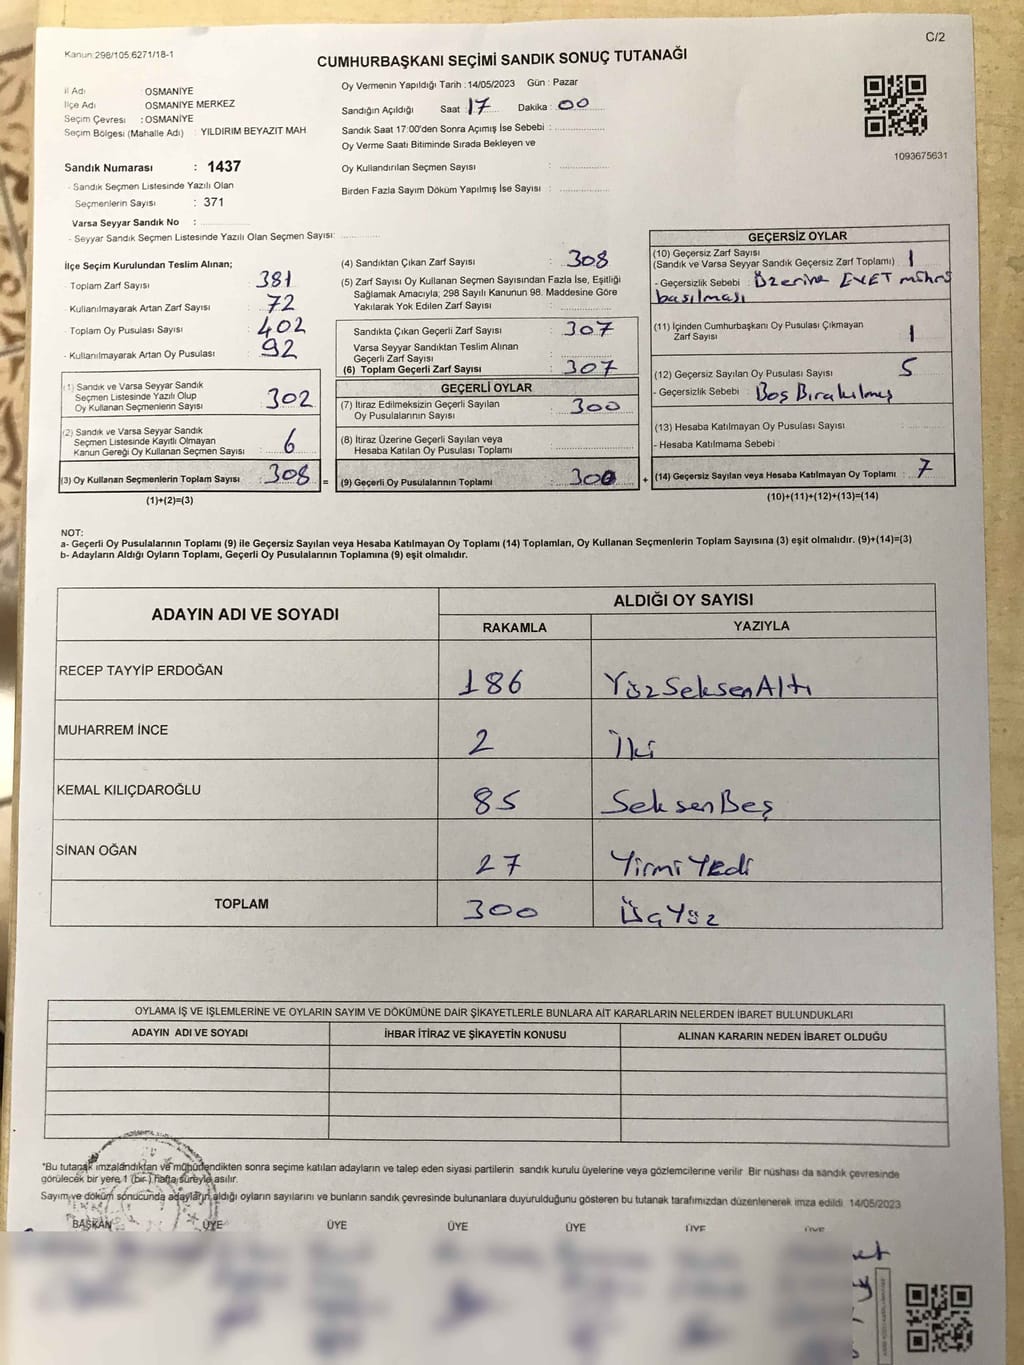 Kanun:298/105.6271/18-1
C/2
CUMHURBAŞKANI SEÇİMİ SANDIK SONUÇ TUTANAĞI
İl Adı : OSMANİYE
İlçe Adı OSMANİYE MERKEZ
Seçim Çevresi : OSMANİYE
Seçim Bölgesi (Mahalle Adı) : YILDIRIM BEYAZIT MAH
Sandık Numarası : 1437
- Sandık Seçmen Listesinde Yazılı Olan
Seçmenlerin Sayısı : 371
Varsa Seyyar Sandık No :
- Seyyar Sandık Seçmen Listesinde Yazılı Olan Seçmen Sayısı:
Oy Vermenin Yapıldığı Tarih :14/05/2023 Gün : Pazar
Sandığın Açıldığı Saat : 17 Dakika : 00
Sandık Saat 17:00'den Sonra Açımış İse Sebebi :
Oy Verme Saati Bitiminde Sırada Bekleyen ve
Oy Kullandırılan Seçmen Sayısı :
Birden Fazla Sayım Döküm Yapılmış İse Sayısı :
1093675631
İlçe Seçim Kurulundan Teslim Alınan;
Toplam Zarf Sayısı : 381
- Kullanılmayarak Artan Zarf Sayısı : 72
- Toplam Oy Pusulası Sayısı : 402
- Kullanılmayarak Artan Oy Pusulası : 92
(1) Sandık ve Varsa Seyyar Sandık
Seçmen Listesinde Yazılı Olup
Oy Kullanan Seçmenlerin Sayısı : 302
(2) Sandık ve Varsa Seyyar Sandık
Seçmen Listesinde Kayıtlı Olmayan
Kanun Gereği Oy Kullanan Seçmen Sayısı : 6
(3) Oy Kullanan Seçmenlerin Toplam Sayısı : 308 =
(1)+(2)=(3)
(4) Sandıktan Çıkan Zarf Sayısı : 308
(5) Zarf Sayısı Oy Kullanan Seçmen Sayısından Fazla İse, Eşitliği
Sağlamak Amacıyla, 298 Sayılı Kanunun 98. Maddesine Göre
Yakılarak Yok Edilen Zarf Sayısı :
Sandıkta Çıkan Geçerli Zarf Sayısı : 307
Varsa Seyyar Sandıktan Teslim Alınan
Geçerli Zarf Sayısı :
(6) Toplam Geçerli Zarf Sayısı : 307
GEÇERLİ OYLAR
(7) İtiraz Edilmeksizin Geçerli Sayılan
Oy Pusulalarının Sayısı : 300
(8) İtiraz Üzerine Geçerli Sayılan veya
Hesaba Katılan Oy Pusulası Toplamı :
(9) Geçerli Oy Pusulalarının Toplamı : 300 +
GEÇERSİZ OYLAR
(10) Geçersiz Zarf Sayısı
(Sandık ve Varsa Seyyar Sandık Geçersiz Zarf Toplamı) : 1
- Geçersizlik Sebebi : Üzerine EVET mührü
basılması
(11) İçinden Cumhurbaşkanı Oy Pusulası Çıkmayan
Zarf Sayısı : 1
(12) Geçersiz Sayılan Oy Pusulası Sayısı : 5
- Geçersizlik Sebebi : Boş Bırakılmış
(13) Hesaba Katılmayan Oy Pusulası Sayısı :
- Hesaba Katılmama Sebebi :
(14) Geçersiz Sayılan veya Hesaba Katılmayan Oy Toplamı : 7
(10)+(11)+(12)+(13)=(14)
NOT:
a- Geçerli Oy Pusulalarının Toplamı (9) ile Geçersiz Sayılan veya Hesaba Katılmayan Oy Toplamı (14) Toplamları, Oy Kullanan Seçmenlerin Toplam Sayısına (3) eşit olmalıdır. (9)+(14)=(3)
b- Adayların Aldığı Oyların Toplamı, Geçerli Oy Pusulalarının Toplamına (9) eşit olmalıdır.
ADAYIN ADI VE SOYADI
ALDIĞI OY SAYISI
RAKAMLA YAZIYLA
RECEP TAYYİP ERDOĞAN 186 YüzSeksenAltı
MUHARREM İNCE 2 İki
KEMAL KILIÇDAROĞLU 85 SeksenBeş
SİNAN OĞAN 27 YirmiYedi
TOPLAM 300 ÜçYüz
OYLAMA İŞ VE İŞLEMLERİNE VE OYLARIN SAYIM VE DÖKÜMÜNE DAİR ŞİKAYETLERLE BUNLARA AİT KARARLARIN NELERDEN İBARET BULUNDUKLARI
ADAYIN ADI VE SOYADI İHBAR İTİRAZ VE ŞİKAYETİN KONUSU ALINAN KARARIN NEDEN İBARET OLDUĞU
*Bu tutanak imzalandıktan ve mühürlendikten sonra seçime katılan adayların ve talep eden siyasi partilerin sandık kurulu üyelerine veya gözlemcilerine verilir. Bir nüshası da sandık çevresinde
görülecek bir yere 1 (bir ) hafta süreyle asılır.
Sayım ve döküm sonucunda adayların aldığı oyların sayılarını ve bunların sandık çevresinde bulunanlara duyurulduğunu gösteren bu tutanak tarafımızdan düzenlenerek imza edildi. 14/05/2023
BAŞKAN ÜYE ÜYE ÜYE ÜYE ÜYE ÜYE